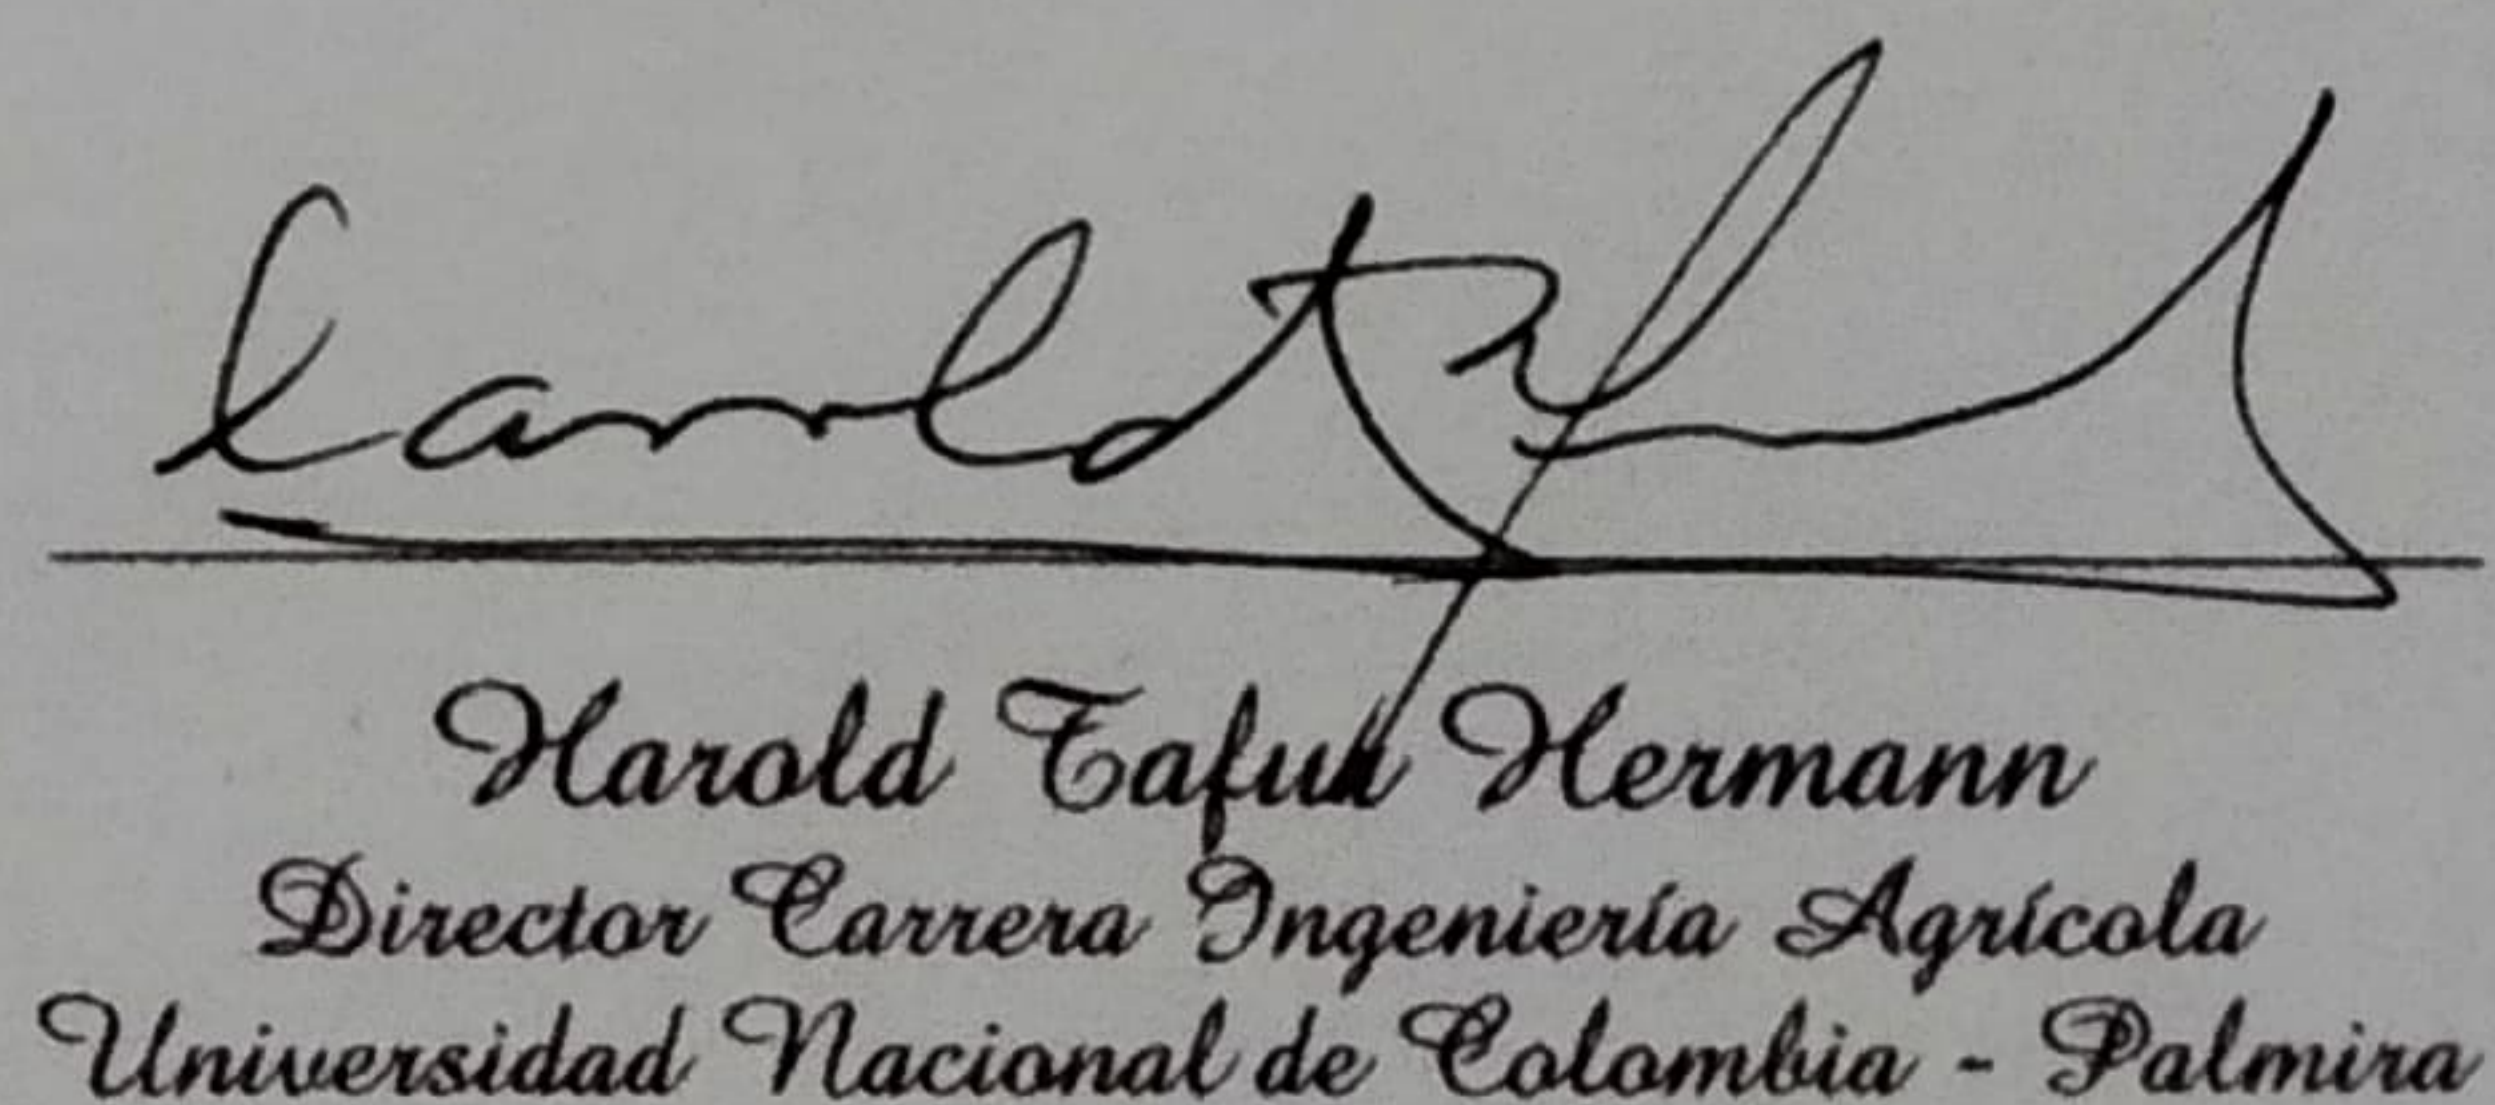 Harold Tafur Hermann
Director Carrera Ingeniería Agrícola
Universidad Nacional de Colombia - Palmira